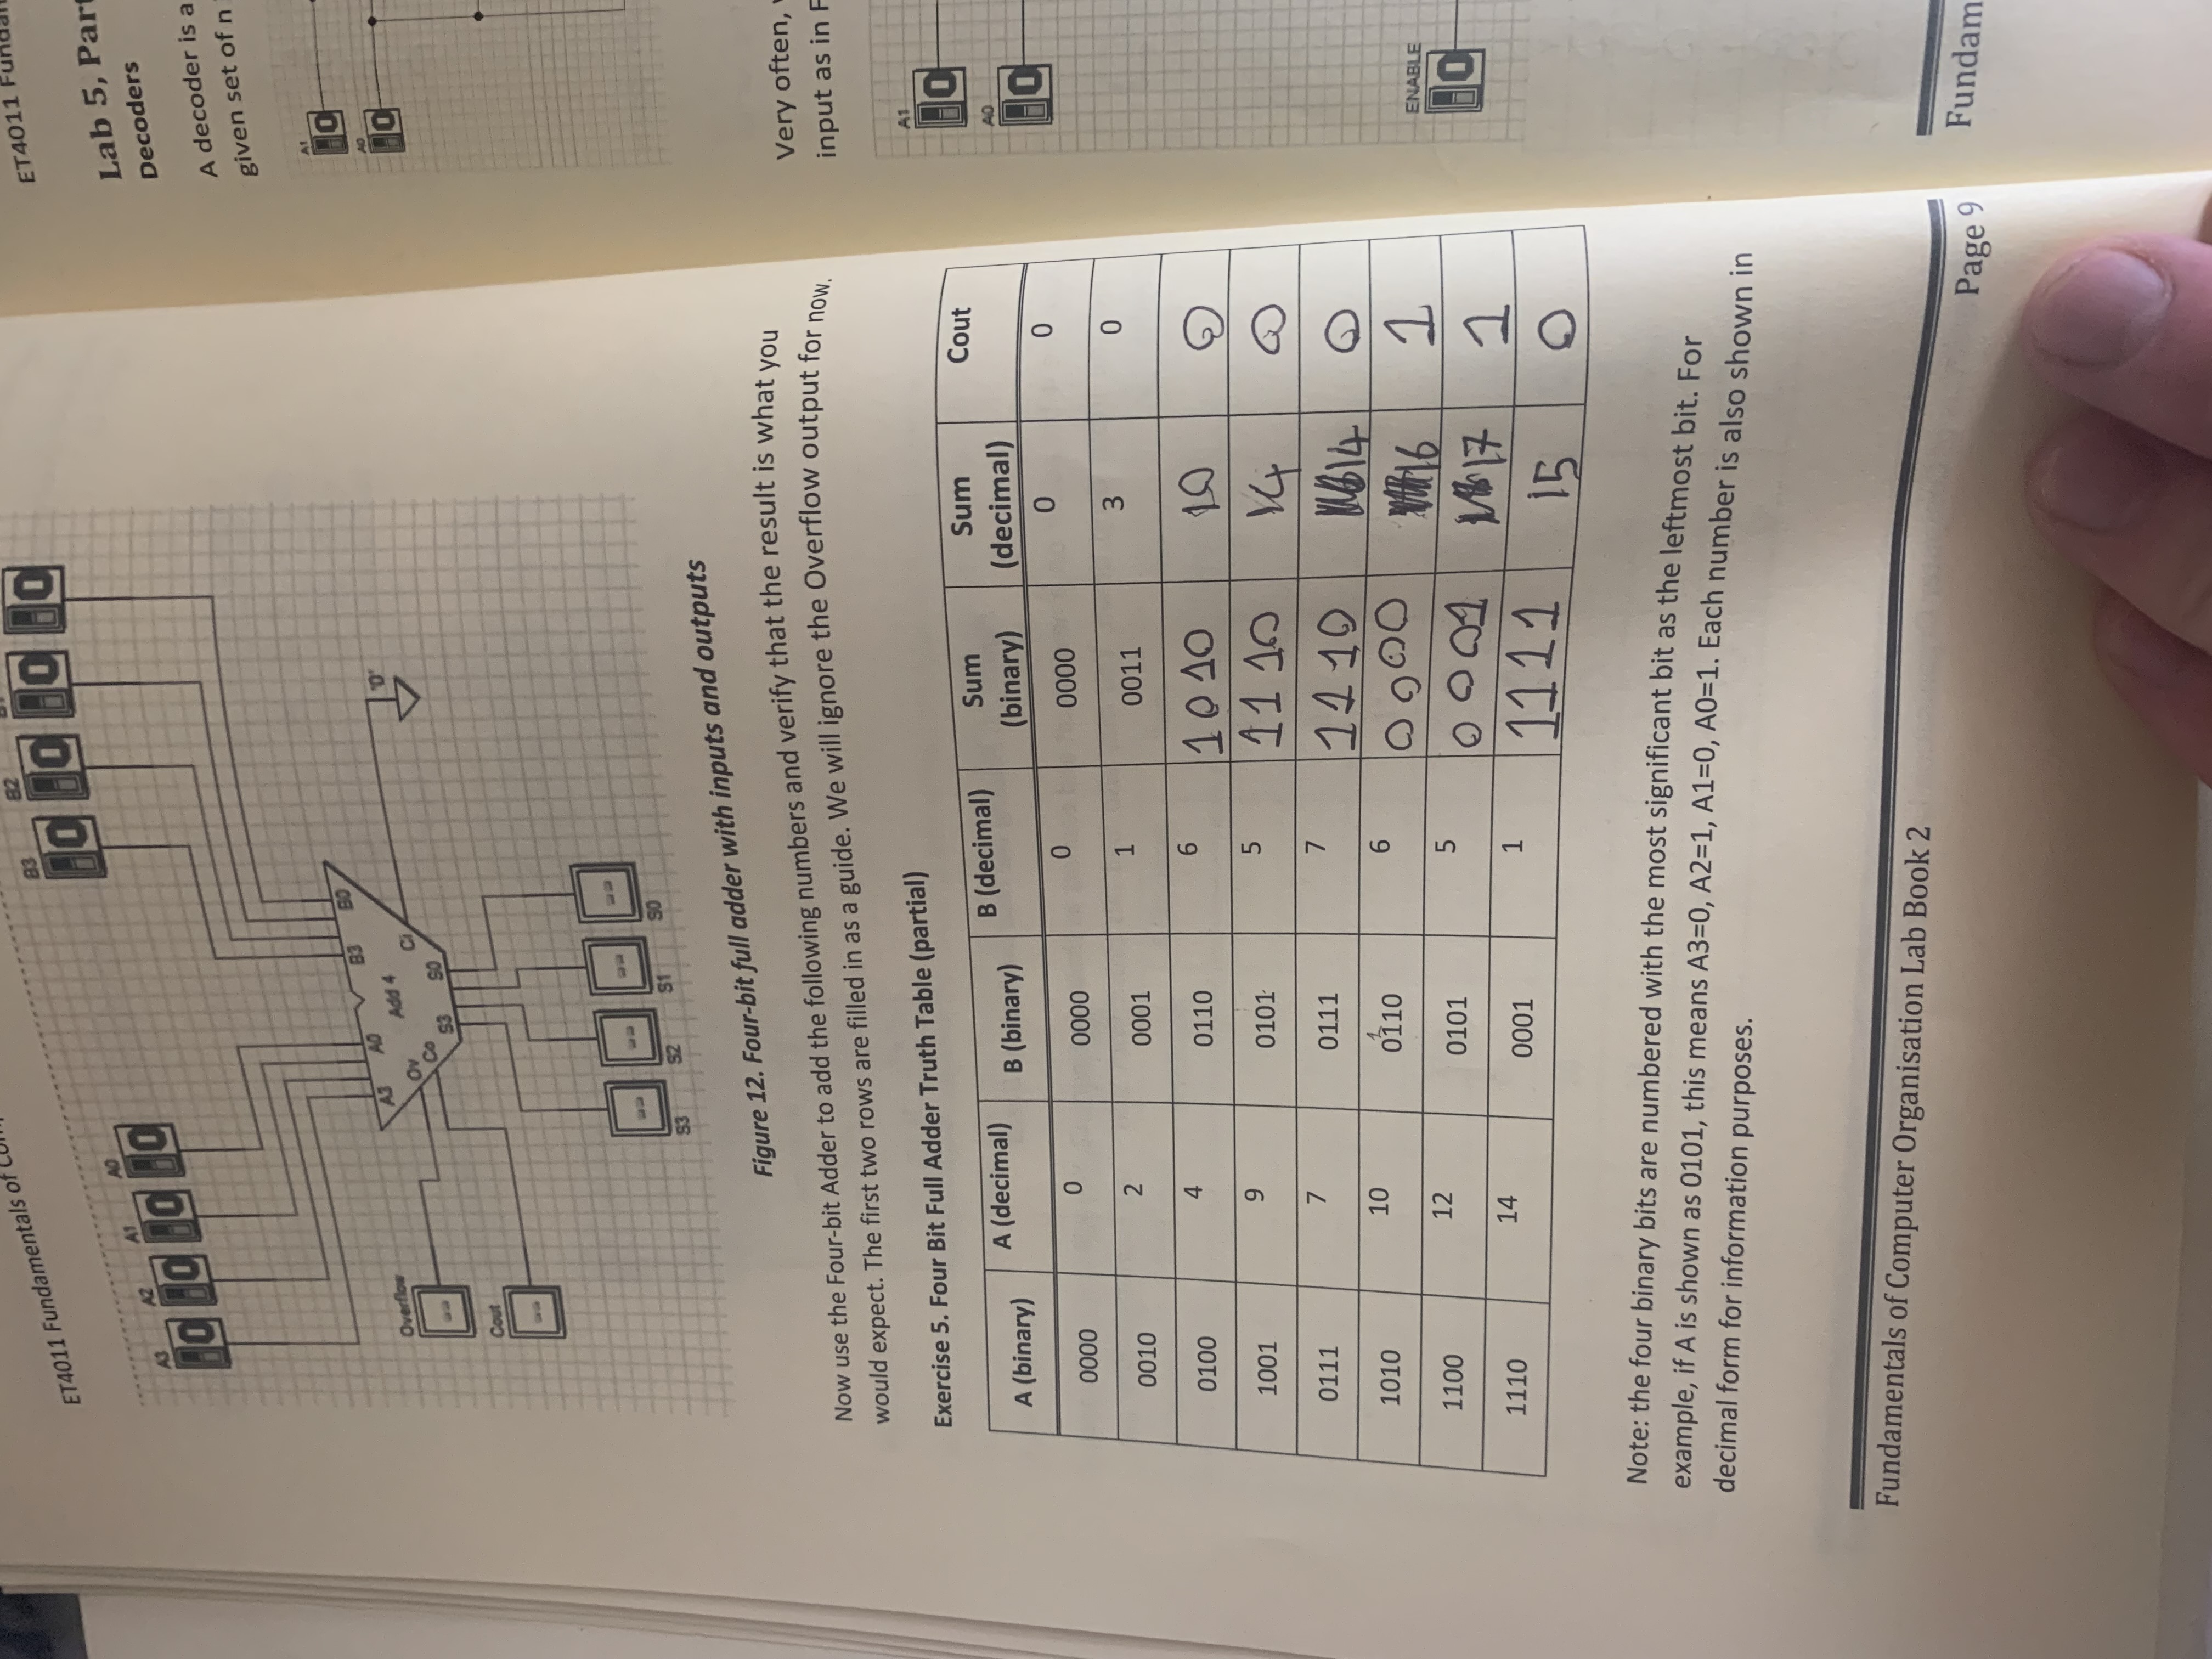 ET4011 Fundamentals of
B3 B2
A3 A2 A1 A0
0 0 0 0
0 0 0 0
A3 A0 B3 B0
Add 4
Ov
Co
Ci
S3 S0
"0"
Overflow
--
Cout
--
-- -- -- --
S3 S2 S1 S0
Figure 12. Four-bit full adder with inputs and outputs
Now use the Four-bit Adder to add the following numbers and verify that the result is what you
would expect. The first two rows are filled in as a guide. We will ignore the Overflow output for now.
Exercise 5. Four Bit Full Adder Truth Table (partial)
A (binary) A (decimal) B (binary) B (decimal) Sum (binary) Sum (decimal) Cout
0000 0 0000 0 0000 0 0
0010 2 0001 1 0011 3 0
0100 4 0110 6 1010 10 0
1001 9 0101 5 1110 14 0
0111 7 0111 7 1110 14 0
1
1010 10 0110 6 0000 16 1
1100 12 0101 5 0001 17 1
1110 14 0001 1 1111 15 0
Note: the four binary bits are numbered with the most significant bit as the leftmost bit. For
example, if A is shown as 0101, this means A3=0, A2=1, A1=0, A0=1. Each number is also shown in
decimal form for information purposes.
Fundamentals of Computer Organisation Lab Book 2
Page 9
ET4011
Lab 5,
Decoders
A decoder is a
given set of n
A1
0
A0
0
Very often,
input as in
A1
0
A0
0
ENABLE
0